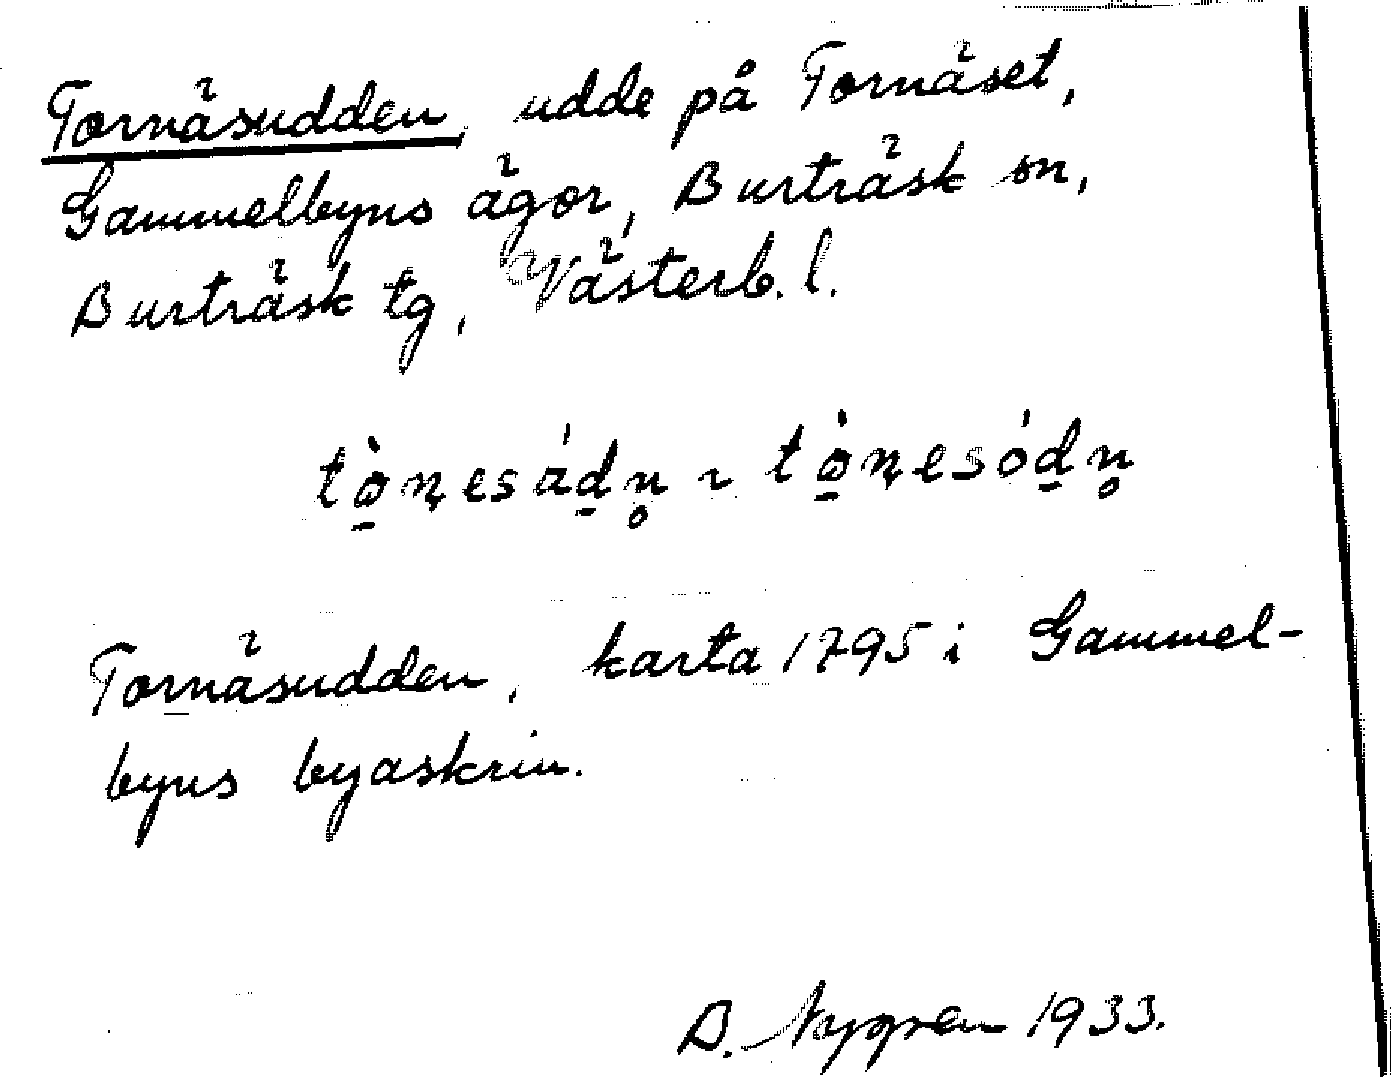 Tornäsudden, udde på Tornäset,
Gammelbyns ägor, Burträsk sn,
Burträsk tg, Västerb. l.
tò̱ṇesád̲n̥ ~ tò̱ṇesód̲n̥
Tornäsudden, karta 1795 i Gammel-
byns byaskrin.
B. Nygren 1933.